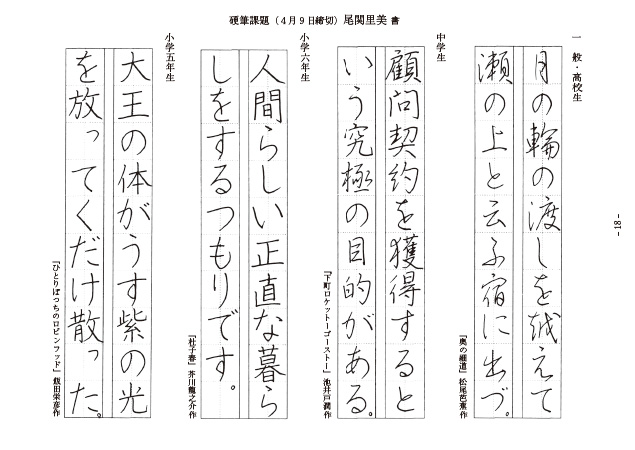 硬筆課題（４月９日締切）尾関里美 書
一般・高校生
月の輪の渡しを越えて
瀬の上と云ふ宿に出づ。
『奥の細道』松尾芭蕉作
中学生
顧問契約を獲得すると
いう究極の目的がある。
『下町ロケットーゴーストー』池井戸潤作
小学六年生
人間らしい正直な暮ら
しをするつもりです。
『杜子春』芥川龍之介作
小学五年生
大王の体がうす紫の光
を放ってくだけ散った。
『ひとりぼっちのロビンフッド』飯田栄彦作
- 18 -